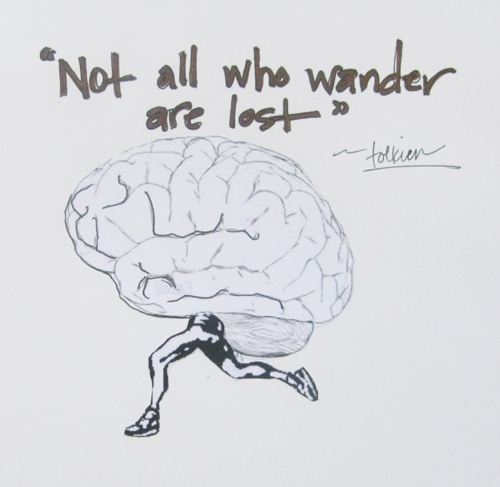 "Not all who wander
are lost"
~ tolkien